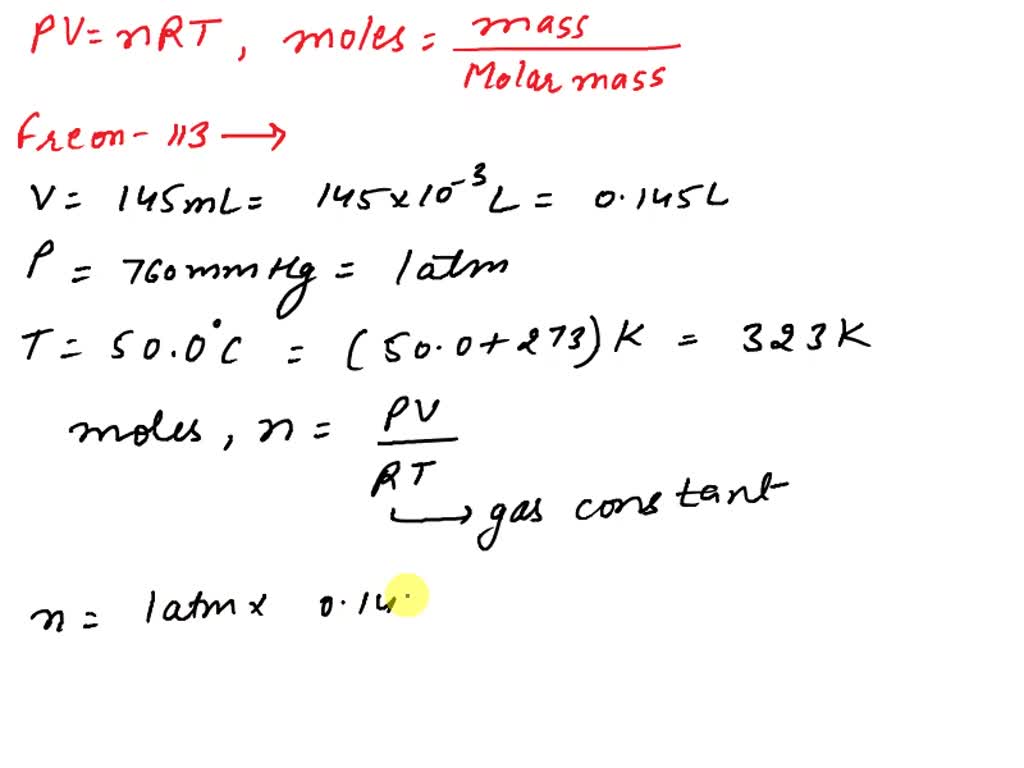 PV=nRT, moles = mass / Molar mass
Freon-113 →
V= 145mL= 145×10⁻³L= 0.145L
P = 760mmHg= 1atm
T= 50.0°C = (50.0+273)K = 323K
moles, n= PV / RT
→ gas constant
n= 1atm× 0.14